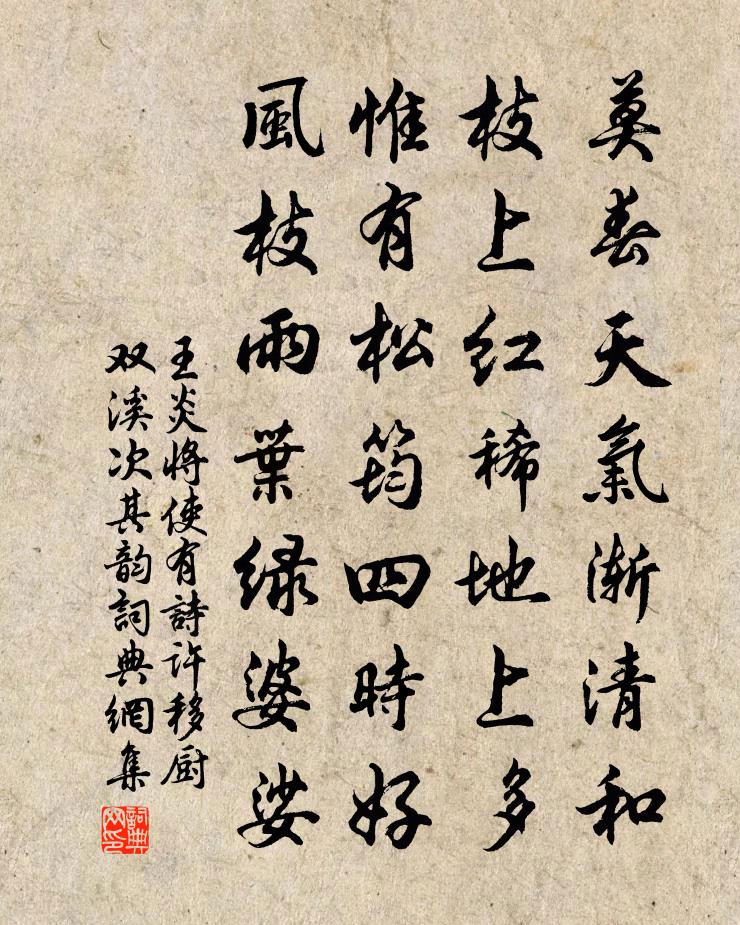 莫春天氣漸清和
枝上紅稀地上多
惟有松筠四時好
風枝雨葉绿婆娑
王炎將使有詩許移厨
双溪次其韵詞典網集
詞典网印